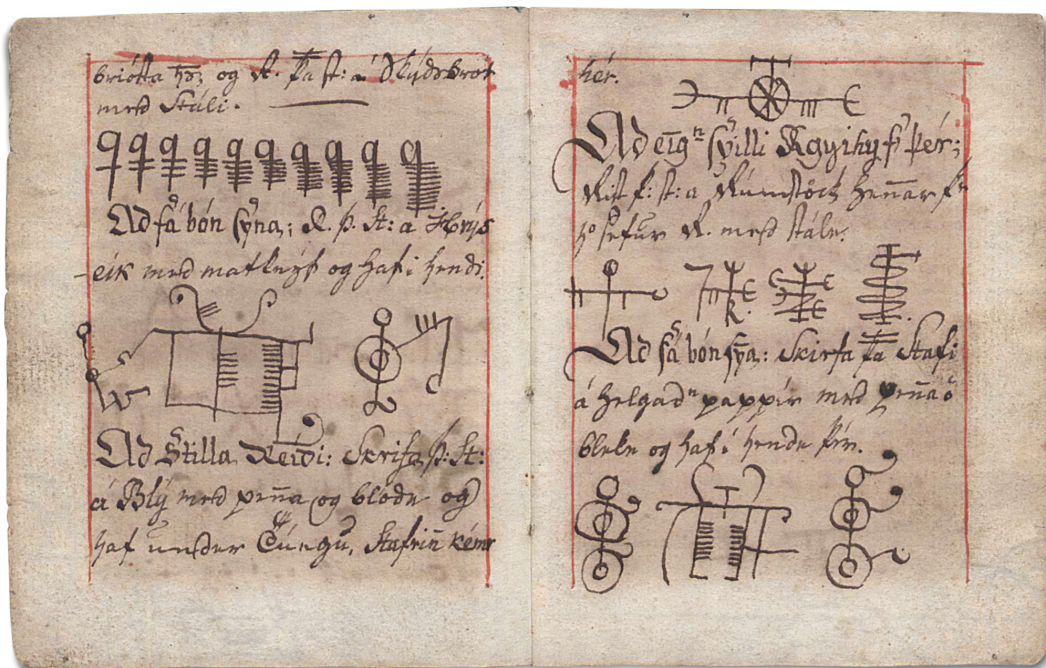 briótta og R. þa st: á Skýdsbrot
med Stáli.
Ad fá bón sýna; R. þ. St: a Hrýs
eik med matknýf og haf i hendi.
Ad Stilla Reidi: Skrifa þ: St:
á Blý med penna og blode og
haf under Túngu, Stafrin kémr
hér.
Ad eig spilli þér;
Rist þ: st: a Rúmstöck hennar
sefur R. med stále.
R.
Ad fá bón sýna: Skirfa þa Stafi
á helgad pappír med penna
bleke og haf i hende þér.